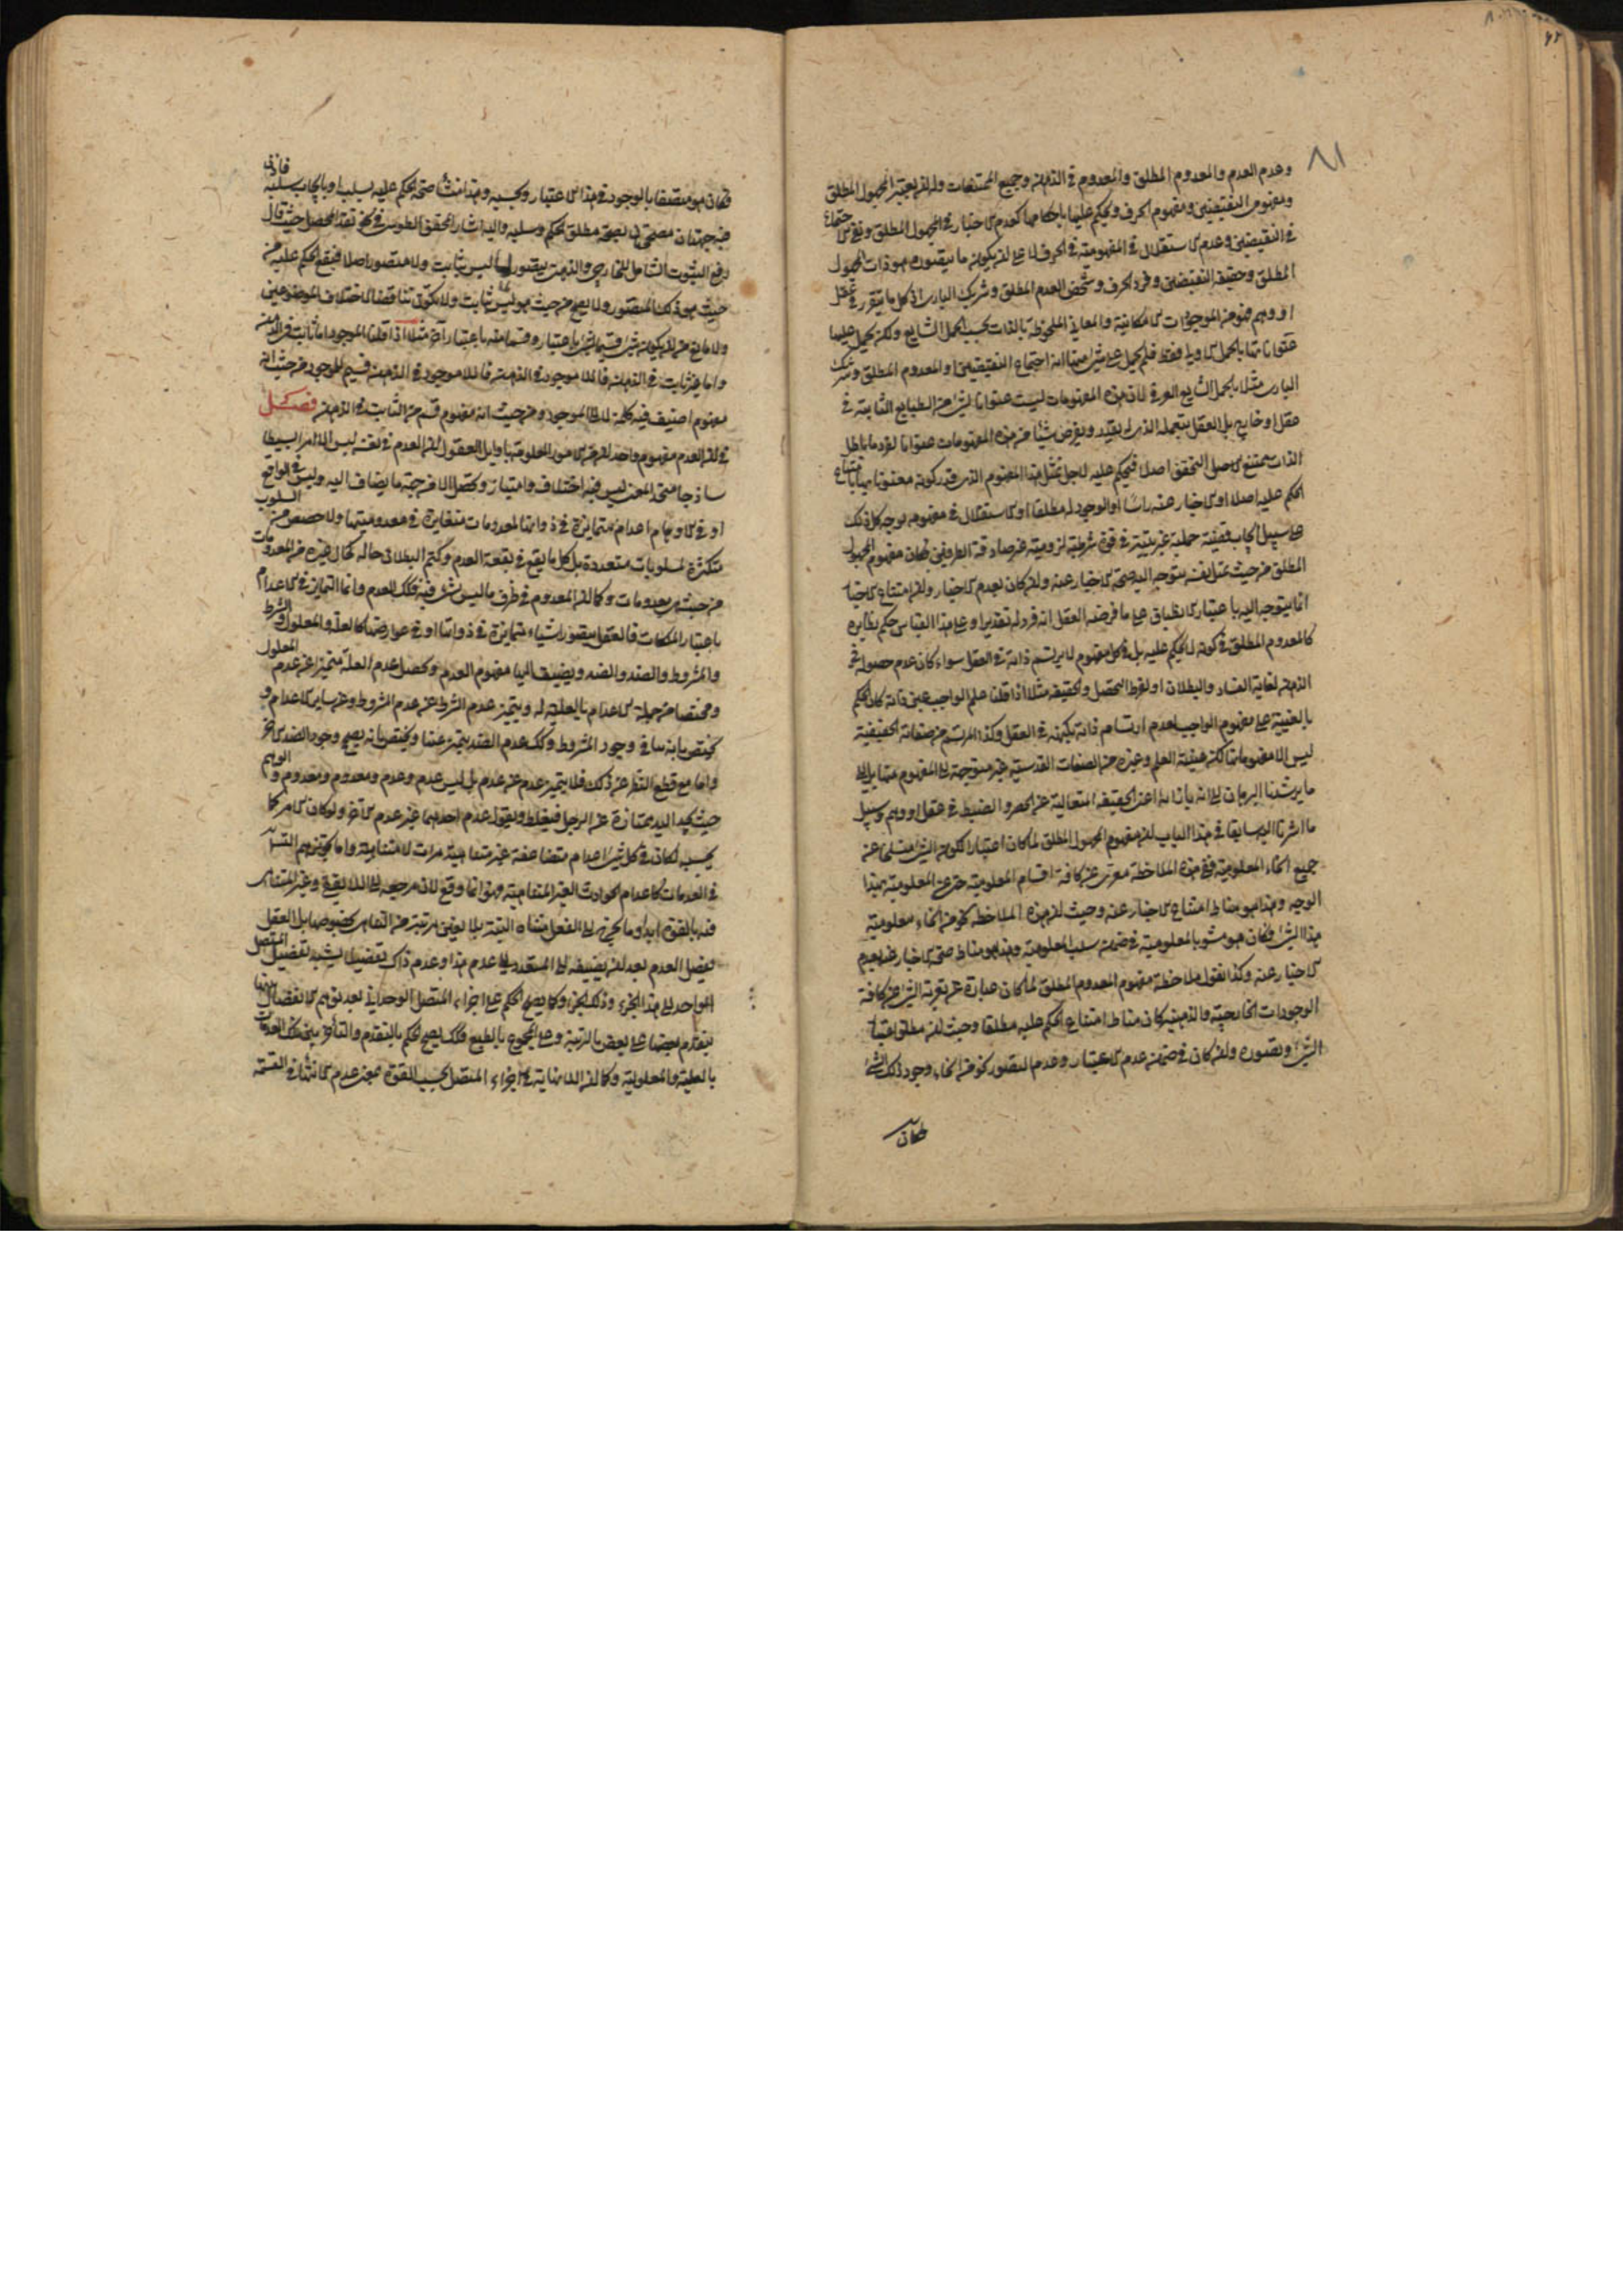 وعدم العدم والمعدوم المطلق والمعدوم في الذهن وجميع الممتنعات وله ان يعتبر المجهول المطلق
ومفهوم النقيضين ومفهوم الحرف ويحكم عليها باحكامها كعدم الاخبار في المجهول المطلق ونفي الاجتماع
في النقيضين وعدم الاستقلال في المفهومية في الحرف لا على ان يكون ما يتصوره هو ذات المجهول
المطلق وحقيقة النقيضين وفرد الحرف وشخص العدم المطلق وشريك الباري اذ كل ما يتقرر في عقل
او وهم فهو من الموجودات الامكانية والمعاني الملحوظة بالذات بحسب الحمل الشايع ولكن يحمل عليها
عنواناتها بالحمل الاولي فقط فلم يحمل على شئ منها انه اجتماع النقيضين او المعدوم المطلق وشريك
الباري مثلا بالحمل الشايع العرضي لان هذه المفهومات ليست عنوانا لشئ من الطبايع الثابتة في
عقل او خارج بل العقل بتعمله الذي له يقدر ويفرض شيئا من هذه المفهومات عنوانا لفرد ما باطل
الذات ممتنع الاصل التحقق اصلا فيحكم عليه لاجل تمثل هذا المفهوم الذي قدر كونه معنونا بها بامتناع
الحكم عليه اصلا او الاخبار عنه راسا او الوجود له مطلقا او الاستقلال في مفهومه بوجه كل ذلك
على سبيل ايجاب قضية حملية غير بتية في قوة شرطية لزومية غير صادقة الطرفين فكان مفهوم المجهول
المطلق من حيث تمثل نفسه يتوجه اليه صحة الاخبار عنه وان كان بعدم الاخبار وان امتناع الاخبار
انما يتوجه اليه باعتبار الانطباق على ما فرضه العقل انه فرد له تقديرا وعلى هذا القياس حكم نظايره
كالمعدوم المطلق في كونه لا يحكم عليه بل في كل مفهوم لا يرتسم ذاته في العقل سواء كان عدم حصوله في
الذهن لغاية الفساد والبطلان او لفرط التحصل والحقيقة مثلا اذا قلنا علم الواجب عين ذاته كان الحكم
بالعينية على مفهوم الواجب لعدم ارتسام ذاته بكنهه في العقل وكذا المرتسم من صفاته الحقيقية
ليس الا مفهوماتها لكن عينية العلم وغيره من الصفات القدسية غير متوجهة الى المفهوم منها بل الى
ما يرشدنا البرهان الى انه بازائه اعني الحقيقة المتعالية عن الحصر والضبط في عقل او وهم وسبيل
ما اشرنا اليه سابقا في هذا الباب ان مفهوم المجهول المطلق لما كان اعتبارا لكون الشئ منسلخا عن
جميع انحاء المعلومية ففي هذه الملاحظة معرى عن كافة اقسام المعلومية حتى عن المعلومية بهذا
الوجه وهذا هو مناط امتناع الاخبار عنه وحيث ان هذه الملاحظة نحو من انحاء معلومية
هذا الشئ فكان هو مشوبا بالمعلومية في ضمن سلب المعلومية وهذا هو مناط صحة الاخبار عنه بعدم
الاخبار عنه وكذا نقول ملاحظة مفهوم المعدوم المطلق لما كان عبارة عن تعرية الشئ عن كافة
الوجودات الخارجية والذهنية كان مناط امتناع الحكم عليه مطلقا وحيث ان مطلق اعتبار
الشئ وتصوره وان كان في ضمن عدم الاعتبار وعدم التصور نحو من انحاء وجود ذلك الشئ
فكان
فكان هو متصفا بالوجود في هذا الاعتبار وبحسبه وهذا منشأ صحة الحكم عليه بسلب او بايجاب سلبه فاذن
فيه جهتان مصححتان لصحة مطلق الحكم وسلبه واليه اشار المحقق الطوسي في نقد المحصل حيث قال
رفع الثبوت الشامل للخارجي والذهني يتصور لما ليس بثابت ولا متصور اصلا فيصح الحكم عليه من
حيث هو ذلك المتصور ولا يصح من حيث هو ليس بثابت ولا يكون تناقضا لاختلاف الموضوعين
ولا مانع من ان يكون شئ قسيما لشئ باعتبار وقسما منه باعتبار آخر مثلا اذا قلنا الموجود اما ثابت في الذهن
واما غير ثابت في الذهن فاللاموجود في الذهن قسيم للموجود من حيث انه
مفهوم اضيف فيه كلمة لا الى الموجود ومن حيث انه مفهوم قسم من الثابت في الذهن فصل
في ان العدم مفهوم واحد ان من الامور المعلومة باوايل العقول ان العدم في نفسه ليس الا امرا بسيطا
ساذجا متحد المعنى ليس فيه اختلاف وامتياز وتحصل الا من جهة ما يضاف اليه وليس في الواقع
او في الاوهام اعدام متمايزة في ذواتها لمعدومات متغايرة في معدوميتها ولا حصص من السلوب
متكثرة لمسلوبات متعددة بل كل ما يقع في بقعة العدم وكتم البطلان حاله كحال غيره من المعدومات
من حيث هي معدومات وكما ان المعدوم في ظرف ما ليس بشئ فيه فكذلك العدم وانما التمايز في الاعدام
باعتبار الملكات فالعقل يتصور اشياء متمايزة في ذواتها او في عوارضها كالعلة والمعلول والشرط
والمشروط والضد والضد ويضيف اليها مفهوم العدم فيحصل عدم العلة متميزا عن عدم المعلول
ومختصا من جملة الاعدام بالعلية له ويتميز عدم الشرط عن عدم المشروط وعن ساير الاعدام و
يختص بانه ينافي وجود المشروط وكذلك عدم الضد يتميز عنها ويختص بانه يصحح وجود الضد الآخر
واما مع قطع النظر عن ذلك فلا يتميز عدم عن عدم بل ليس عدم وعدم ومعدوم ومعدوم والوهم
حيث يجد اليد ممتازة عن الرجل فيغلط ويقول عدم احدهما غير عدم الآخر ولو كان الامر كما
يحسبه لكان في كل شئ اعدام متضاعفة غير متناهية مرات لا متناهية واما تجويزهم التسلسل
في العدمات كاعدام الحوادث الغير المتناهية فهو انما وقع لان مرجعه الى اللايقفي وغير المتناهي
فيه بالقوة ابدا وما يخرج الى الفعل متناه البتة بلا تعين مرتبة من التناهي بخصوصها بل العقل
يفصل العدم بعد ان يضيفه الى المتعدد الى عدم هذا وعدم ذاك تفصيلا يشبه تفصيل المتصل
الواحد الى هذا الجزء وذلك الجزء وكما يصح الحكم على اجزاء المتصل الوحداني بعد توهم الانفصال بينها
بتقدم بعضها على بعض بالرتبة وعلى المجموع بالطبع فكذلك يصح الحكم بالتقدم والتأخر بين تلك العدمات
بالعلية والمعلولية وكما ان اللانهاية في اجزاء المتصل بحسب القوة بمعنى عدم الانتهاء في القسمة